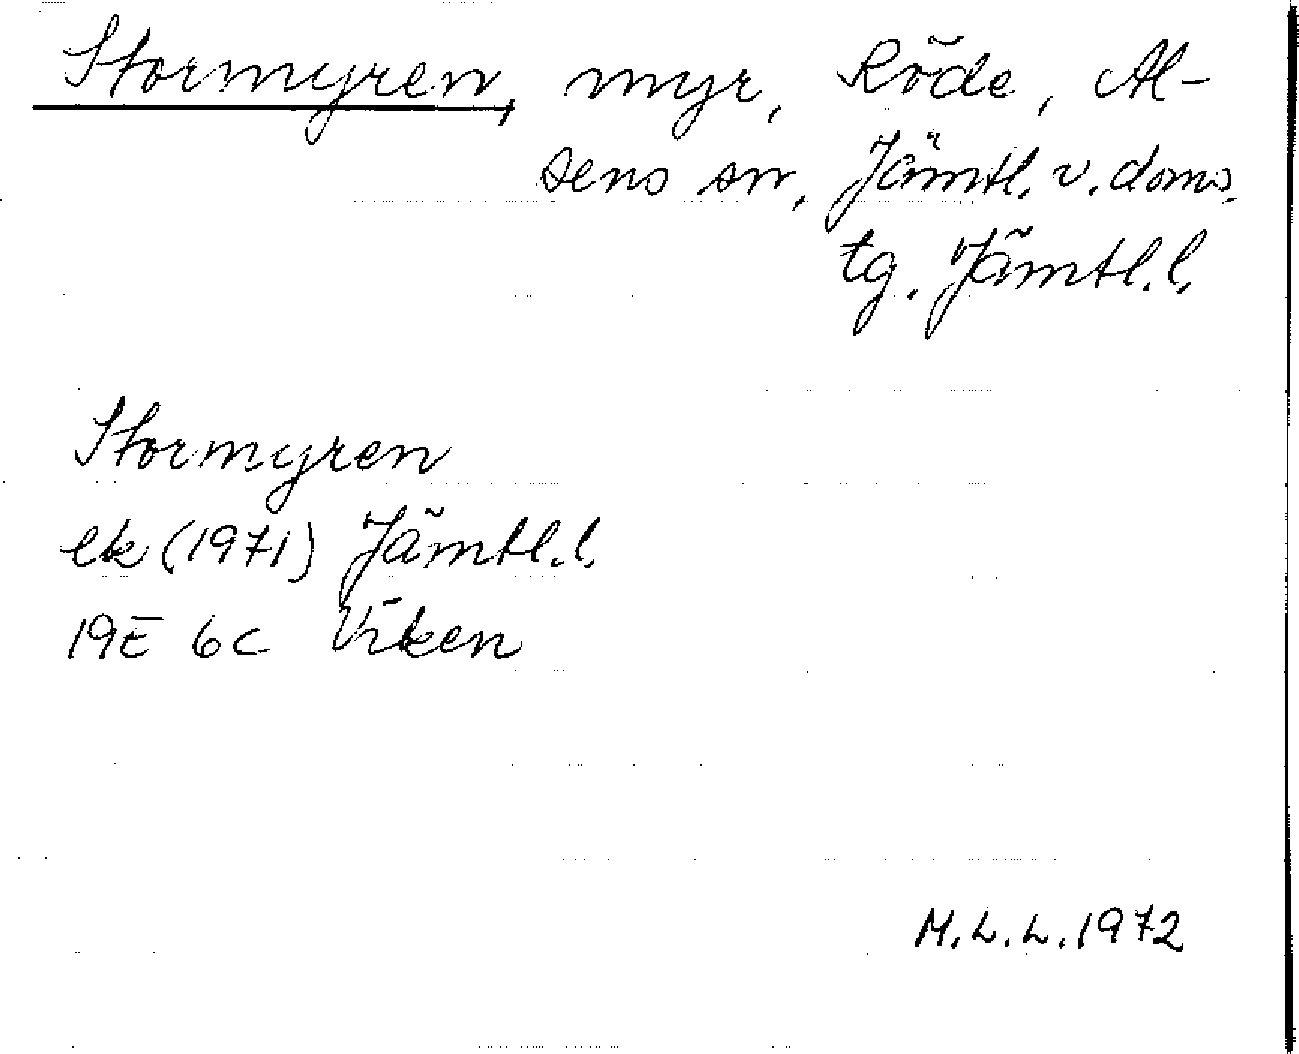 Stormyren, myr, Röde, Al-
sens sn, Jämtl. v. doms.
tg. Jämtl. l.
Stormyren
ek (1971) Jämtl. l.
19E 6c Viken
M. L. L. 1972